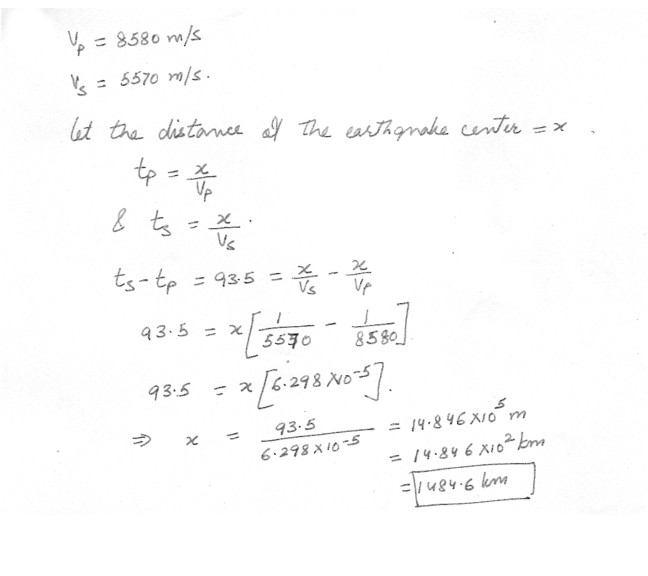 Vp = 8580 m/s
Vs = 5570 m/s.
let the distance of the earthquake center = x .
tp = x/Vp
& ts = x/Vs .
ts - tp = 93.5 = x/Vs - x/Vp
93.5 = x[1/5570 - 1/8580]
93.5 = x[6.298 X10^-5].
⇒ x = 93.5/6.298 X 10^-5 = 14.846 X10^5 m
= 14.846 X10^2 km
= 1484.6 km